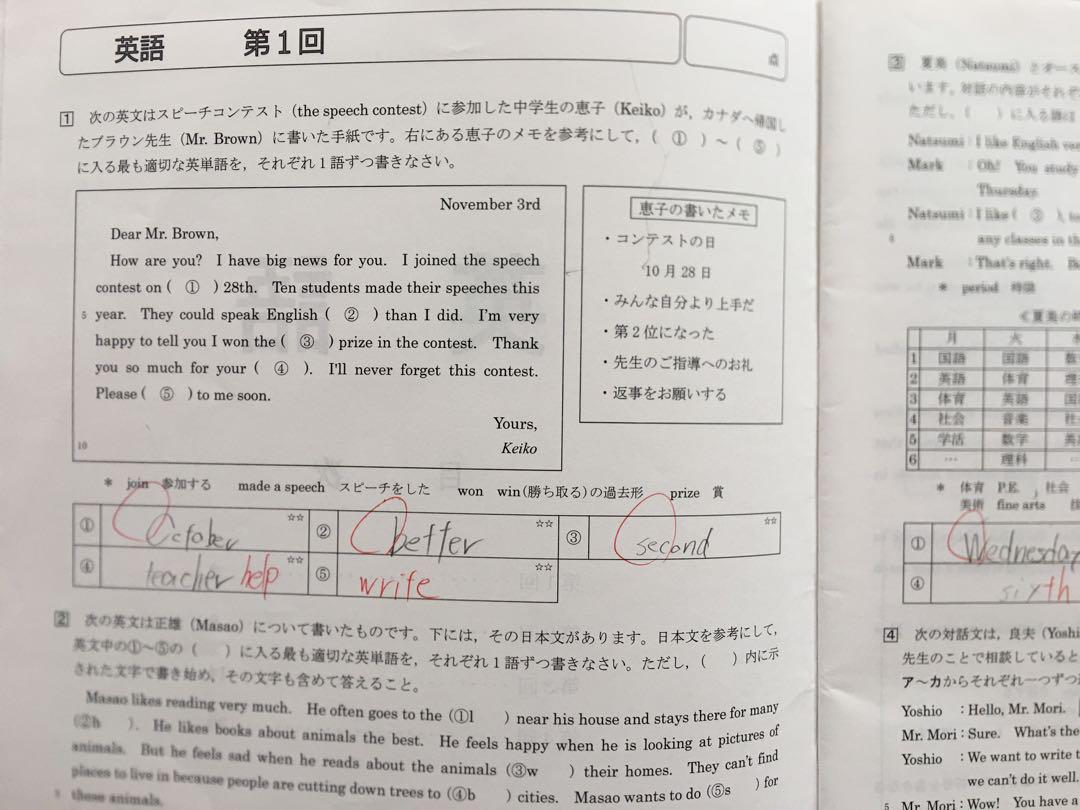 英語 第1回
点
1 次の英文はスピーチコンテスト（the speech contest）に参加した中学生の恵子（Keiko）が，カナダへ帰国し
たブラウン先生（Mr. Brown）に書いた手紙です。右にある恵子のメモを参考にして，（ ① ）～（ ⑤ ）
に入る最も適切な英単語を，それぞれ1語ずつ書きなさい。
November 3rd
Dear Mr. Brown,
How are you? I have big news for you. I joined the speech
contest on ( ① ) 28th. Ten students made their speeches this
5 year. They could speak English ( ② ) than I did. I'm very
happy to tell you I won the ( ③ ) prize in the contest. Thank
you so much for your ( ④ ). I'll never forget this contest.
Please ( ⑤ ) to me soon.
Yours,
10 Keiko
恵子の書いたメモ
・コンテストの日
10月28日
・みんな自分より上手だ
・第2位になった
・先生のご指導へのお礼
・返事をお願いする
* join 参加する made a speech スピーチをした won win（勝ち取る）の過去形 prize 賞
① October ☆☆ ② better ☆☆ ③ second ☆☆
④ teacher help ☆☆ ⑤ write ☆☆
2 次の英文は正雄（Masao）について書いたものです。下には，その日本文があります。日本文を参考にして，
英文中の①～⑤の（ ）に入る最も適切な英単語を，それぞれ1語ずつ書きなさい。ただし，（ ）内に示
された文字で書き始め，その文字も含めて答えること。
Masao likes reading very much. He often goes to the (①l ) near his house and stays there for many
(②h ). He likes books about animals the best. He feels happy when he is looking at pictures of
animals. But he feels sad when he reads about the animals (③w ) their homes. They can't find
places to live in because people are cutting down trees to (④b ) cities. Masao wants to do (⑤s ) for
5 these animals.
3 夏美（Natsumi）とダース
います。対話の内容がそれぞ
ただし，（ ）に入る語は
Natsumi : I like English
Mark : Oh! You study
Thursday.
Natsumi : I like ( ③ ),
any classes in th
Mark : That's right.
* period 時限
≪夏美の時
月 火
1 国語 国語 数
2 英語 体育 理
3 体育 英語 国
4 社会 音楽 社
5 学活 数学 英
6 … 理科
* 体育 P.E. , 社会
美術 fine arts 技
① Wednesday
④ sixth
4 次の対話文は，良夫（Yoshi
先生のことで相談していると
ア～カからそれぞれ一つずつ
Yoshio : Hello, Mr. Mori.
Mr. Mori : Sure. What's the
Yoshio : We want to write t
we can't do it well.
5 Mr. Mori : Wow! You have a